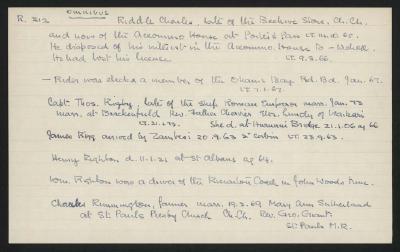 R. 212
Omnibus
Riddle Charles, late of the Beehive Store, Ch. Ch.
and now of the Accommo. House at Porter's Pass LT. 14.10.65.
He disposed of his interest in the Accommo. House to - McNeill.
He had lost his licence LT. 9.3.66.
- Rider was elected a member of the Okains Bay Rd. Bd. Jan. 67.
LT. 7.1.67.
Capt. Thos. Rigby, late of the ship Roman Emperor marr. Jan. 73
marr. at Brackenfield Rev. Father Chervier Thos. Lundy of Waikari
LT. 21.1.73. She d. at Hurunui Bridge 21.1.06 ag 66
James Ring arrived by Zambesi 20.9.63 LT. 23.9.63.
Henry Righton d. 11.1.21 at St Albans ag 64.
Wm. Righton was a driver of the Riccarton Coach in John Woods time.
Charles Rimmington, farmer marr. 19.3.69 Mary Ann Sutherland
at St. Pauls Presby Church Ch. Ch. Rev. Geo. Grant.
St. Pauls M.R.